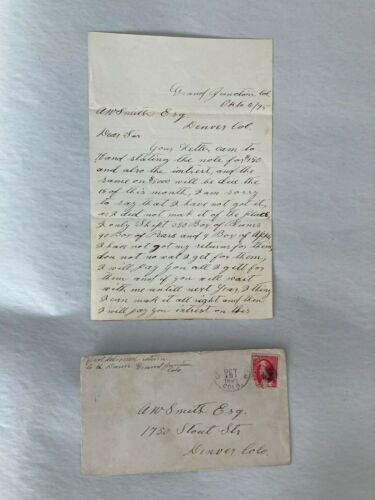 Grand Junction Col
Oct 6/95
AW Smith Esq.
Denver Col.
Dear Sir
Your Letter cam to
Hand stating the note for
and also the intrest, and the
same on will be due the
of this month, I am sorry
to say that I have not got it,
as I did not mak it of the place
I only Shipt Box of
Box of and 9 Box of
I have not got my returns for them,
don not no wat I get for them,
I will pay you all I gett for
them and if you will wait
with me untill next Year I thing
I can mak it all right and then
I will pay you intrest on this
return
to Grand Junction
Colo
OCT
COLO.
AW Smith Esq.
1750 Stout Str
Denver Colo.